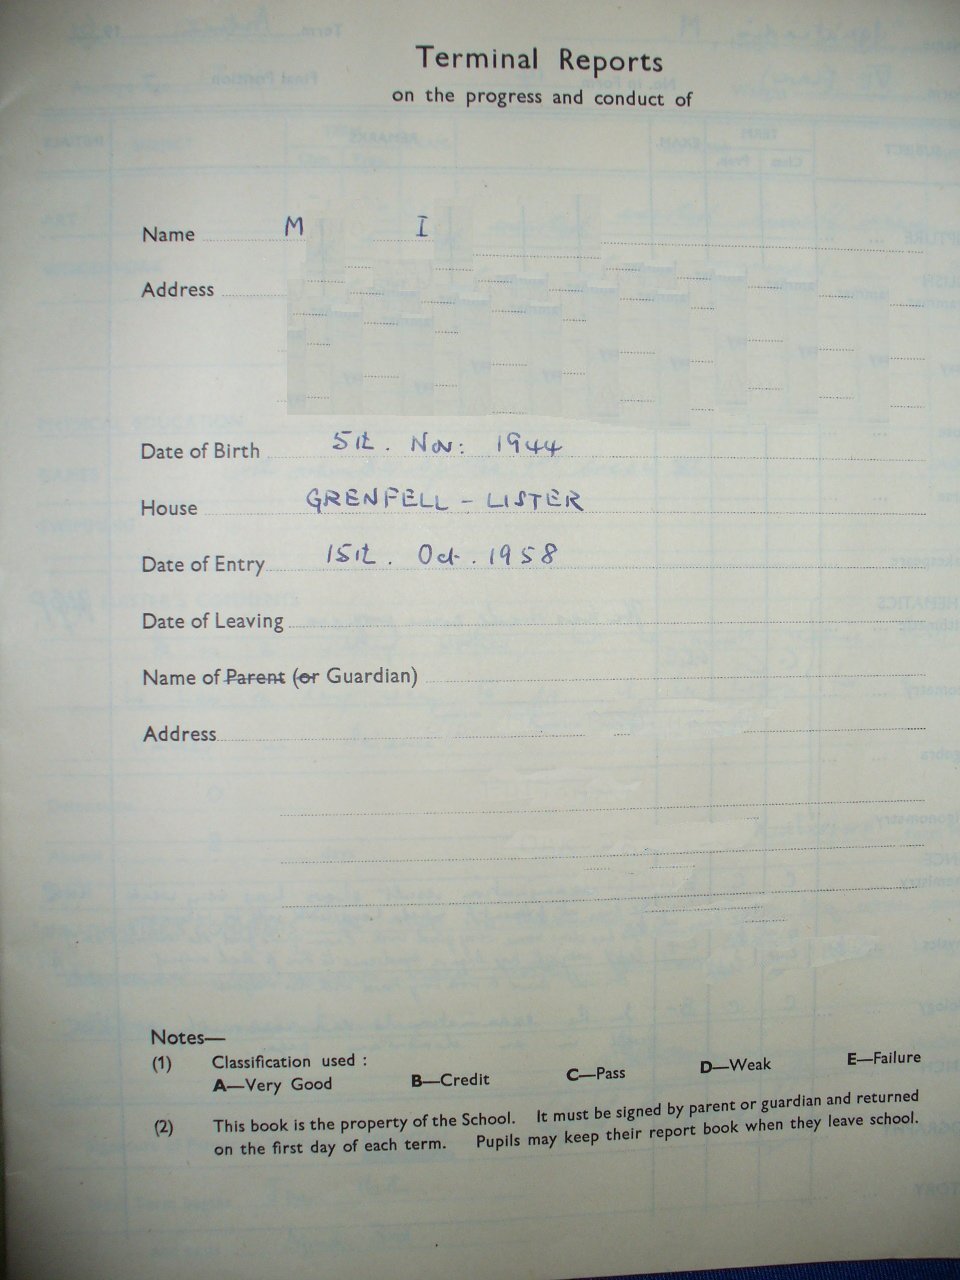 Terminal Reports
on the progress and conduct of
Name M I
Address
Date of Birth 5th. Nov: 1944
House GRENFELL - LISTER
Date of Entry 15th. Oct. 1958
Date of Leaving
Name of Parent (or Guardian)
Address
Notes—
(1) Classification used :
A—Very Good B—Credit C—Pass D—Weak E—Failure
(2) This book is the property of the School. It must be signed by parent or guardian and returned
on the first day of each term. Pupils may keep their report book when they leave school.